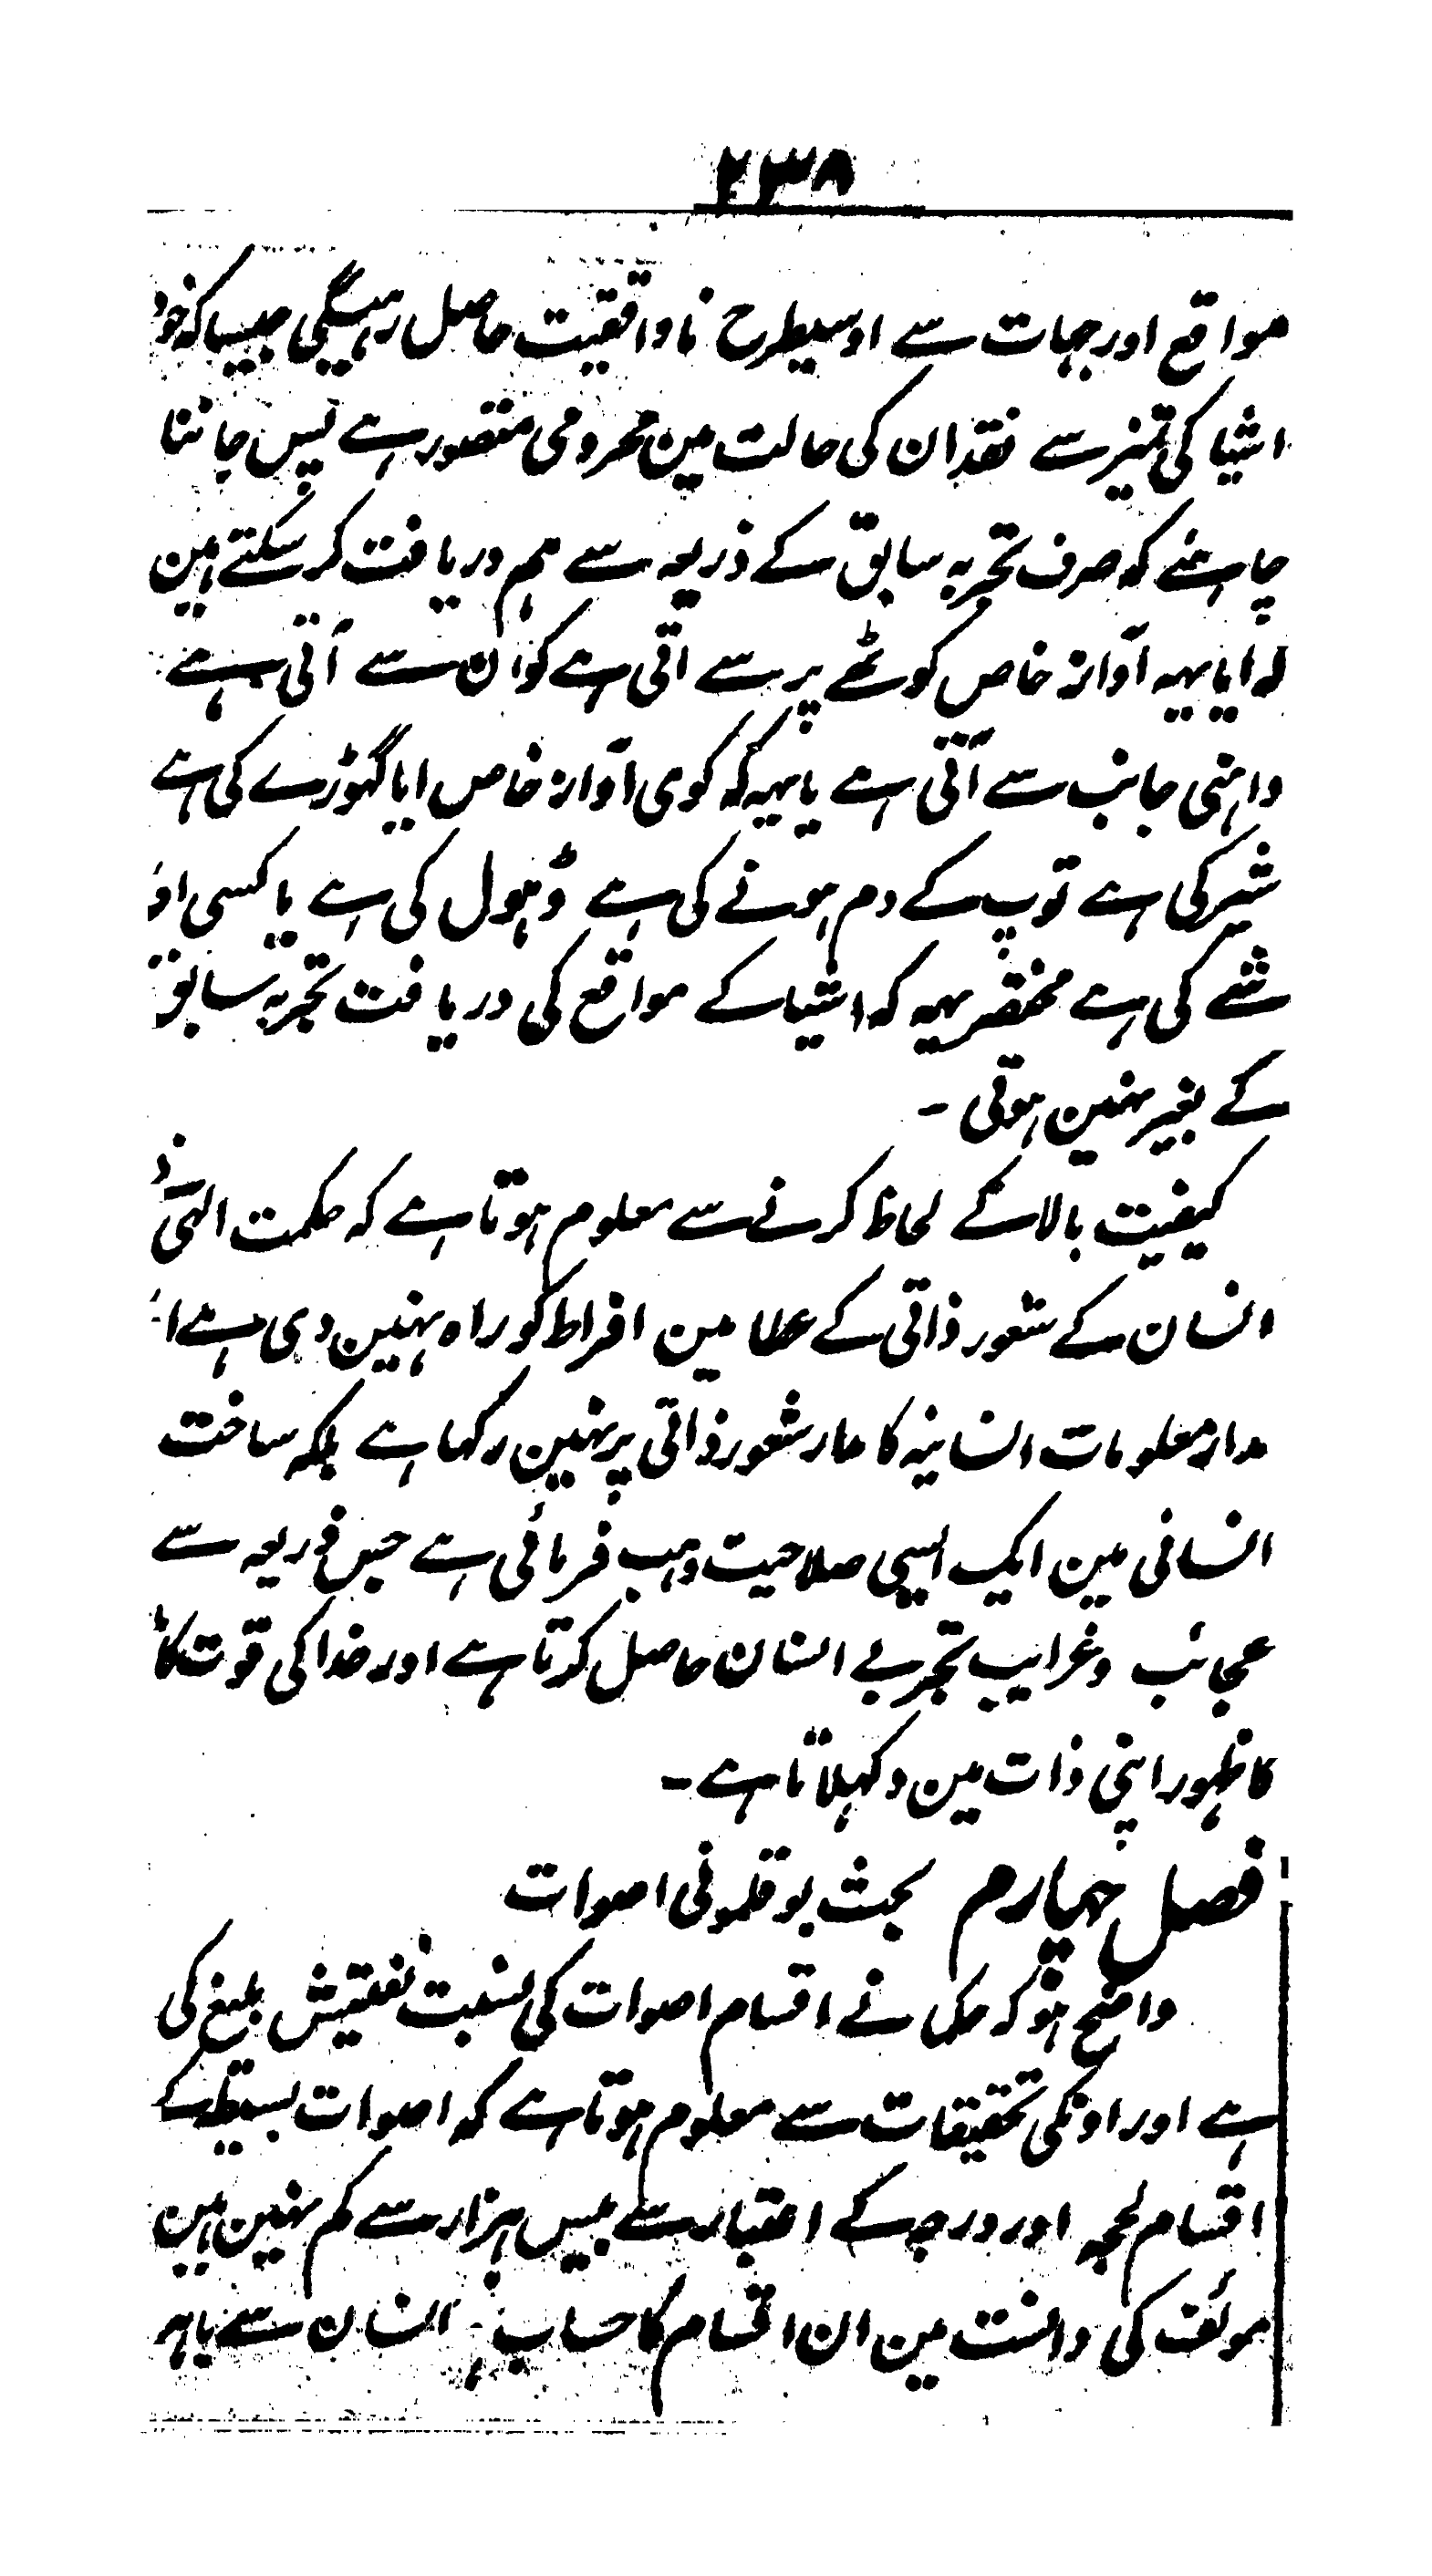 ۲۳۸
مواقع اور جہات سے اوسیطرح ناواقفیت حاصل رہیگی جیسا کہ خود
اشیا کی تمیز سے فقدان کی حالت مین محرومی متصور ہے پس جاننا
چاہئے کہ صرف تجربہ سابق کے ذریعہ سے ہم دریافت کر سکتے ہین
کہ ایا یہہ آواز خاص کوٹھے پر سے اتی ہے کوان سے آتی ہے
داہنی جانب سے آتی ہے یا یہہ کہ کوی آواز خاص ایا گہوڑے کی ہے
شیر کی ہے توپ کے دم ہونے کی ہے ڈہول کی ہے یا کسی اور
شے کی ہے مختصر یہہ کہ اشیا کے مواقع کی دریافت تجربہ سابق
کے بغیر نہین ہوتی -
کیفیت بالا کے لحاظ کرنے سے معلوم ہوتا ہے کہ حکمت الہی نے
انسان کے شعور ذاتی کے عطا مین افراط کو راہ نہین دی ہے
مدار معلومات انسانیہ کا مدار شعور ذاتی پر نہین رکہا ہے بلکہ ساخت
انسانی مین ایک ایسی صلاحیت وہب فرمائی ہے جس ذریعہ سے
عجائب وغرایب تجربے انسان حاصل کرتا ہے اور خدا کی قوت کا
کا ظہور اپنی ذات مین دکہلاتا ہے -
فصل چہارم بحث بوقلمونی اصوات
واضح ہو کہ حکما نے اقسام اصوات کی نسبت تفتیش بلیغ کی
ہے اور اونکی تحقیقات سے معلوم ہوتا ہے کہ اصوات بسیطہ کے
اقسام لہجہ اور درجہ کے اعتبار سے بیس ہزار سے کم نہین ہین
مولف کی دانست مین ان اقسام کا حساب انسان سے باہر